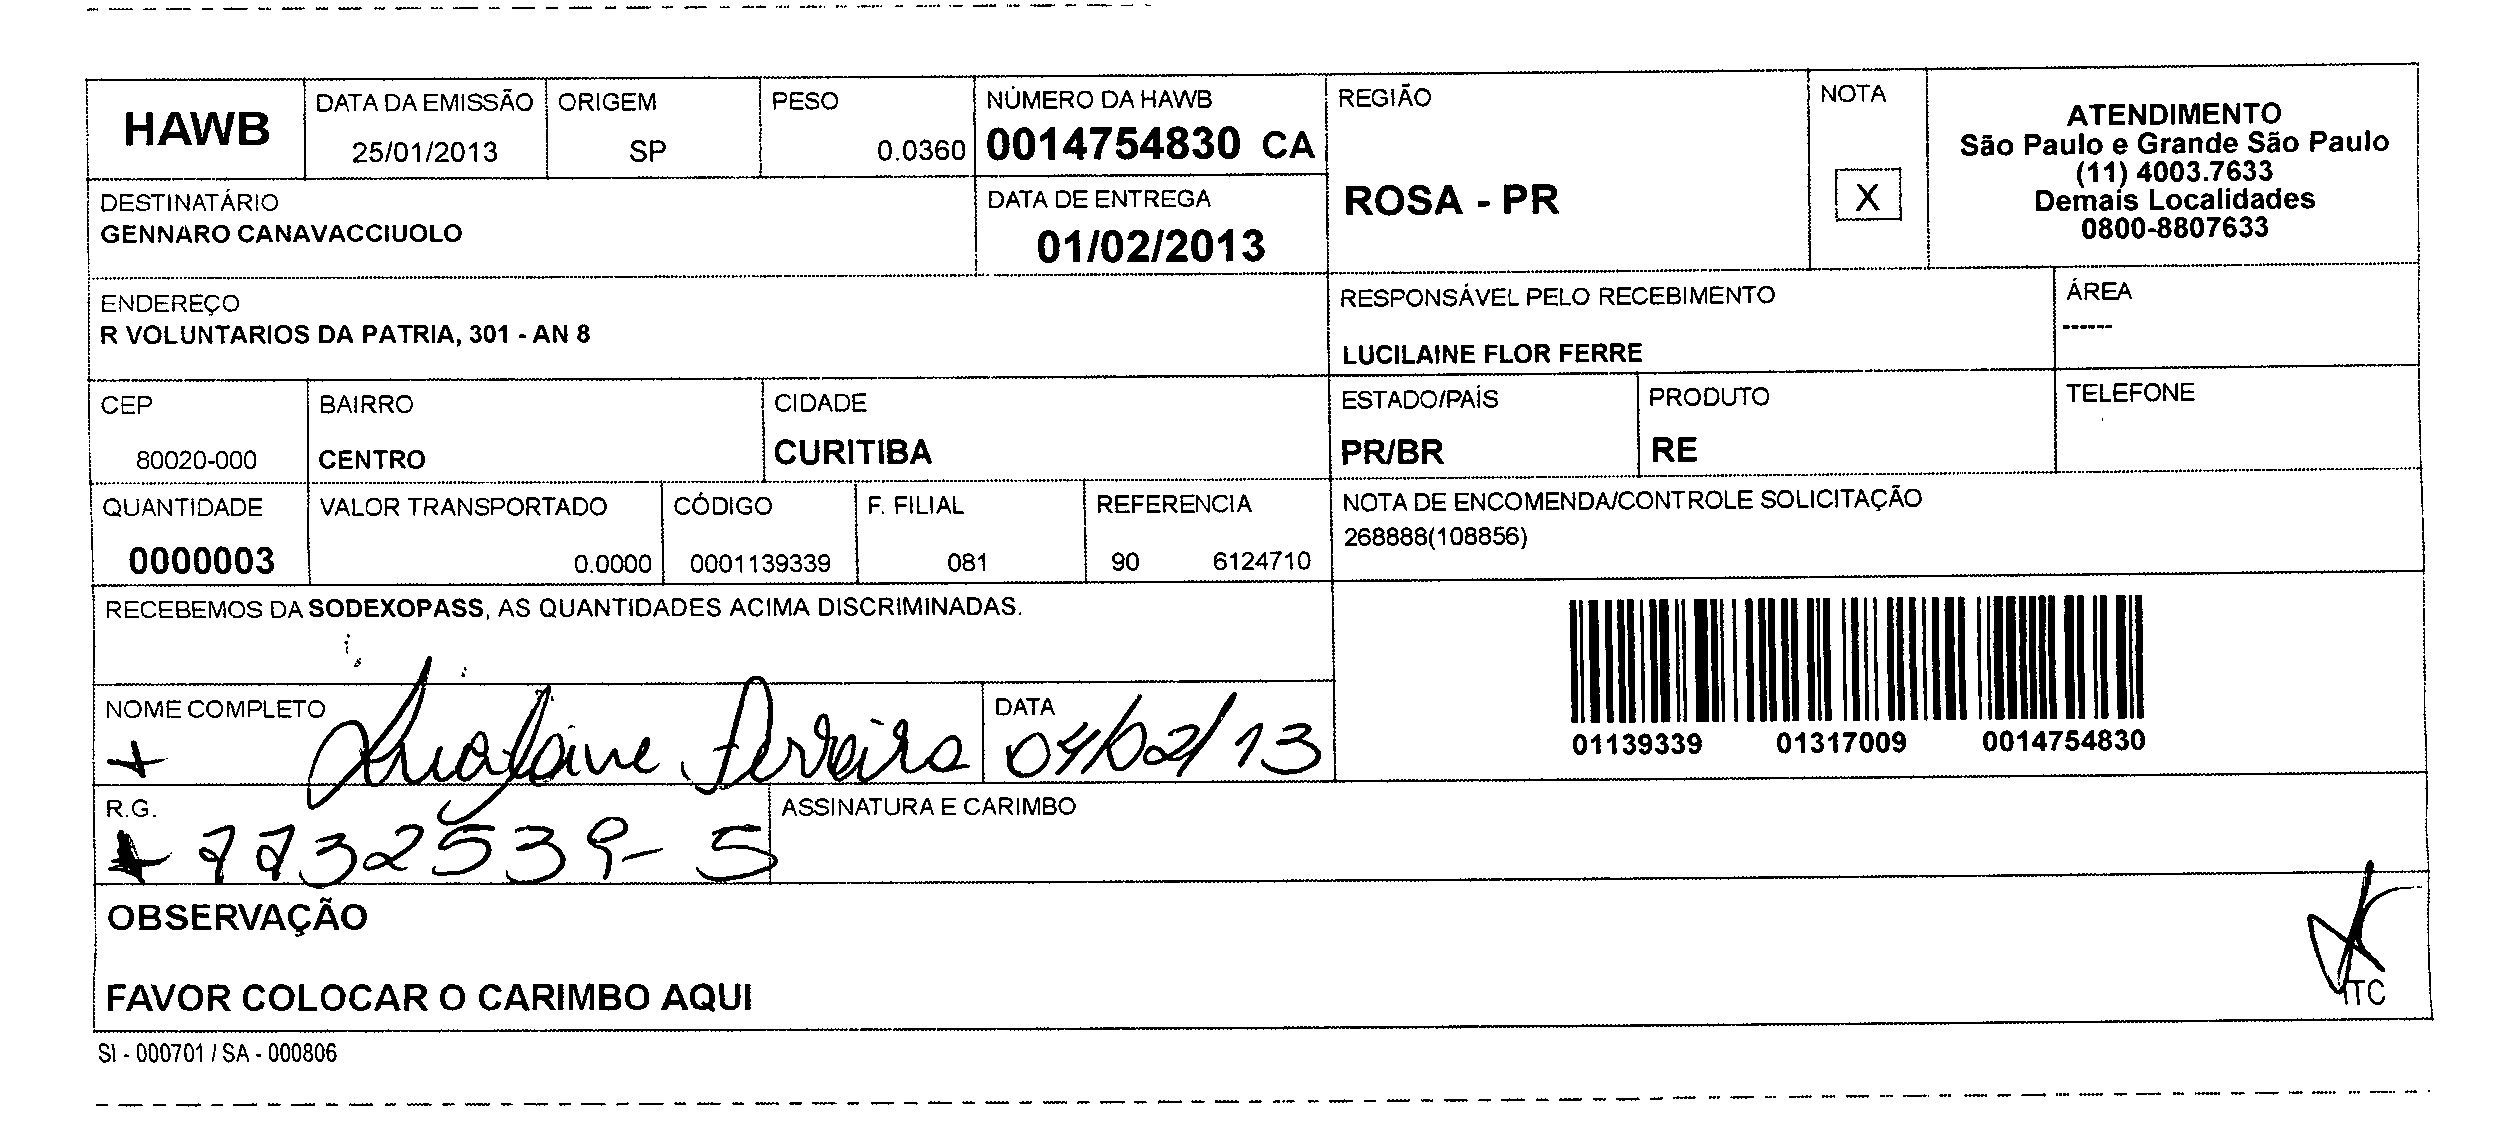 HAWB
DATA DA EMISSÃO
25/01/2013
ORIGEM
SP
PESO
0.0360
NÚMERO DA HAWB
0014754830 CA
REGIÃO
ROSA - PR
NOTA
X
ATENDIMENTO
São Paulo e Grande São Paulo
(11) 4003.7633
Demais Localidades
0800-8807633
DESTINATÁRIO
GENNARO CANAVACCIUOLO
DATA DE ENTREGA
01/02/2013
ENDEREÇO
R VOLUNTARIOS DA PATRIA, 301 - AN 8
RESPONSÁVEL PELO RECEBIMENTO
LUCILAINE FLOR FERRE
ÁREA
------
CEP
80020-000
BAIRRO
CENTRO
CIDADE
CURITIBA
ESTADO/PAÍS
PR/BR
PRODUTO
RE
TELEFONE
QUANTIDADE
0000003
VALOR TRANSPORTADO
0.0000
CÓDIGO
0001139339
F. FILIAL
081
REFERENCIA
90 6124710
NOTA DE ENCOMENDA/CONTROLE SOLICITAÇÃO
268888(108856)
RECEBEMOS DA SODEXOPASS, AS QUANTIDADES ACIMA DISCRIMINADAS.
NOME COMPLETO
Lucilaine Ferreira
DATA
04/02/13
01139339 01317009 0014754830
R.G.
7732539-5
ASSINATURA E CARIMBO
OBSERVAÇÃO
FAVOR COLOCAR O CARIMBO AQUI
ITC
SI - 000701 / SA - 000806